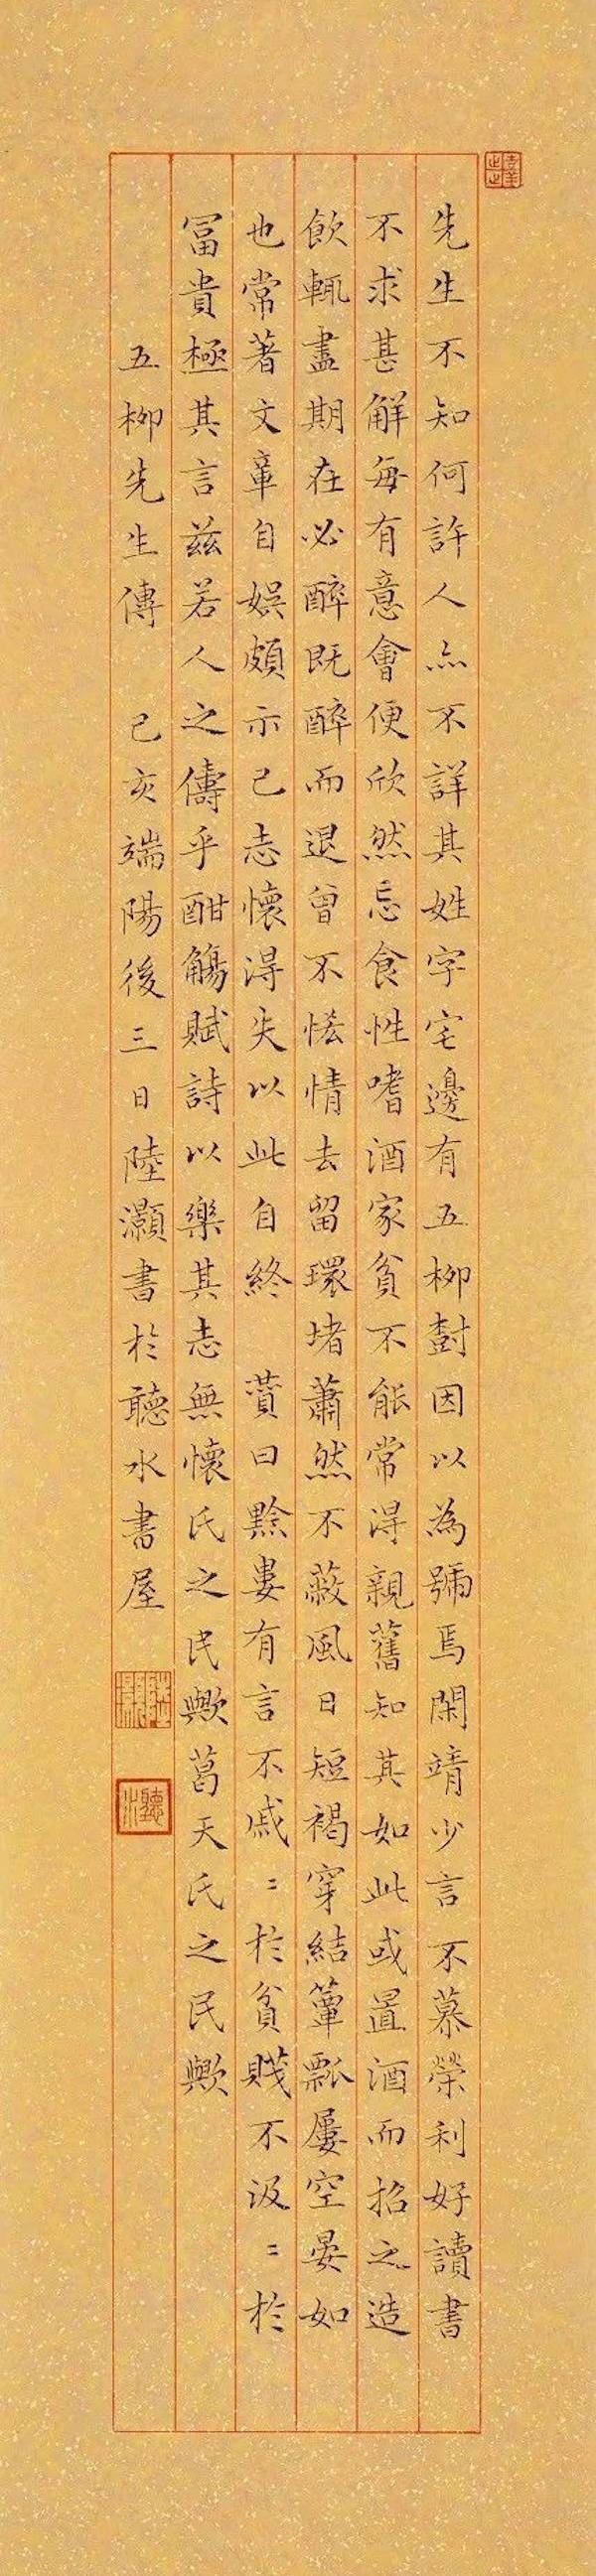 先生不知何許人亦不詳其姓字宅邊有五柳樹因以為號焉閑靖少言不慕榮利好讀書
不求甚解每有意會便欣然忘食性嗜酒家貧不能常得親舊知其如此或置酒而招之造
飲輒盡期在必醉既醉而退曾不恡情去留環堵蕭然不蔽風日短褐穿結簞瓢屢空晏如
也常著文章自娛頗示己志懷得失以此自終 贊曰黔婁有言不戚〻於貧賤不汲〻於
冨貴極其言茲若人之儔乎酣觴賦詩以樂其志無懷氏之民歟葛天氏之民歟
五柳先生傳 己亥端陽後三日陸灝書於聽水書屋
聽水